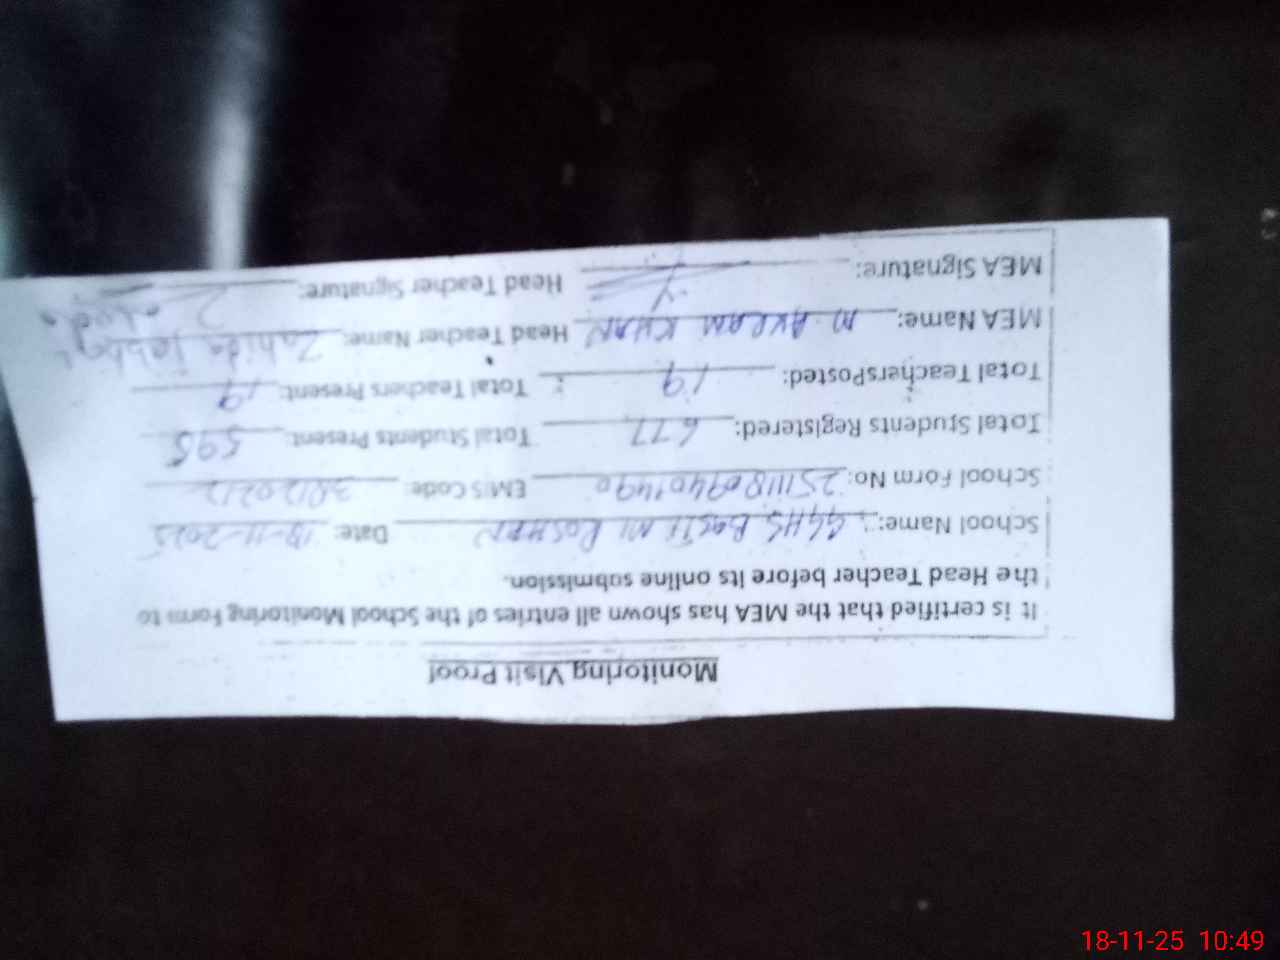 Monitoring Visit Proof
It is certified that the MEA has shown all entries of the School Monitoring Form to
the Head Teacher before its online submission.
School Name: GGHS, Basti M ROSHAN Date: 18-11-2025
School Form No: EMIS Code:
Total Students Registered: 677 Total Students Present: 595
Total TeachersPosted: 19 Total Teachers Present: 19
MEA Name: M. AKRAM KHAN Head Teacher Name: Zahida
MEA Signature: Head Teacher Signature:
18-11-25 10:49